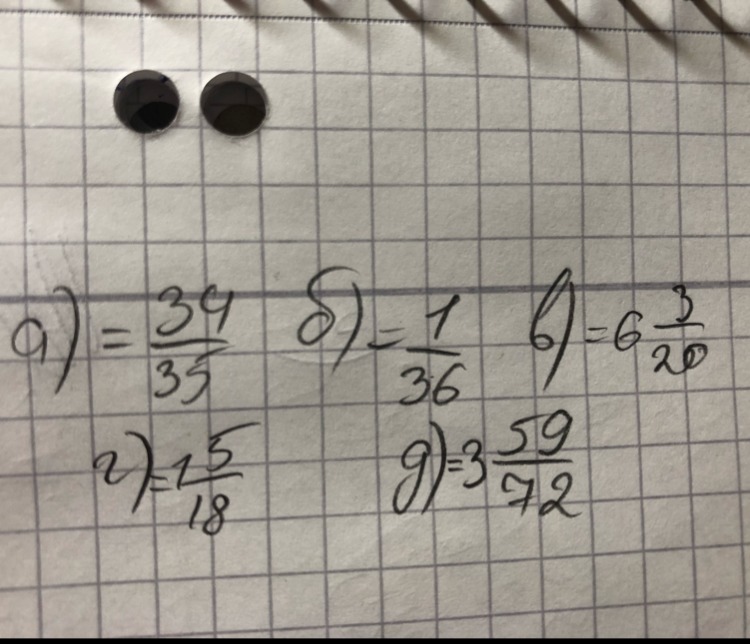 а) = 34/35 б) = 1/36 в) = 6 3/20
г) = 1 5/18 д) = 3 59/72